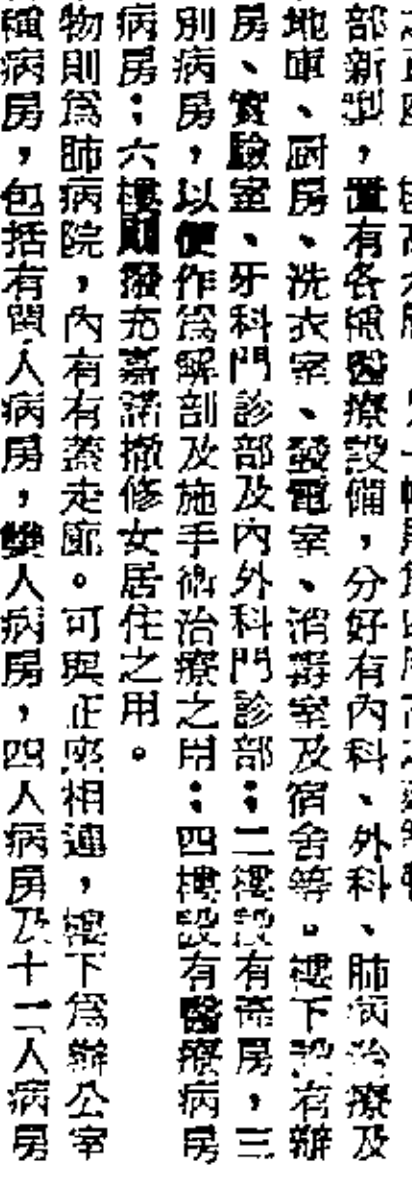 部新型，置有各種醫療設備，分好有內科、外科、肺病治療及
地庫、厨房、洗衣室、發電室、消毒室及宿舍等。樓下設有辦
房、實驗室、牙科門診部及內外科門診部；二樓設有產房，三
別病房，以便作爲解剖及施手術治療之用；四樓設有醫療病房
病房；六樓則撥充嘉諾撒修女居住之用。
物則爲肺病院，內有有蓋走廊。可與正座相連，樓下爲辦公室
種病房，包括有單人病房，雙人病房，四人病房及十二人病房